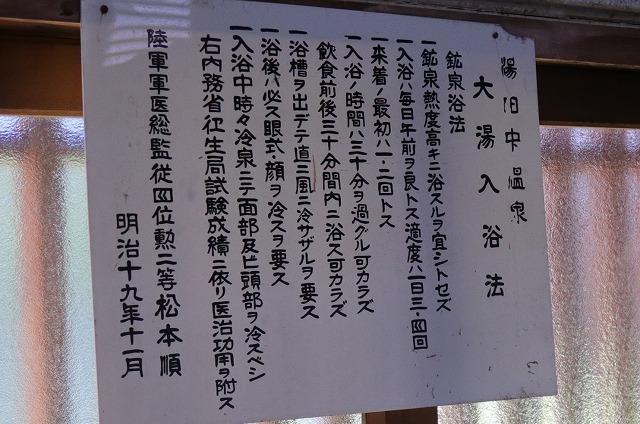 湯田中温泉
大湯入浴法
鉱泉浴法
一鉱泉熱度高キニ浴スルヲ宜シトセズ
一入浴ハ毎日午前ヲ良トス適度ハ一日三・四回
一来着ノ最初ハ一・二回トス
一入浴ノ時間ハ三十分ヲ過グル可カラズ
飲食前後三十分間内ニ浴ス可カラズ
一浴槽ヲ出デテ直ニ風ニ冷サザルヲ要ス
一浴後ハ必ス眼・顔ヲ冷スヲ要ス
一入浴中時々冷泉ニテ面部及ビ頭部ヲ冷スベシ
右内務省衛生局試験成績ニ依リ医治功用ヲ附ス
陸軍軍医総監従四位勲二等松本順
明治十九年十一月